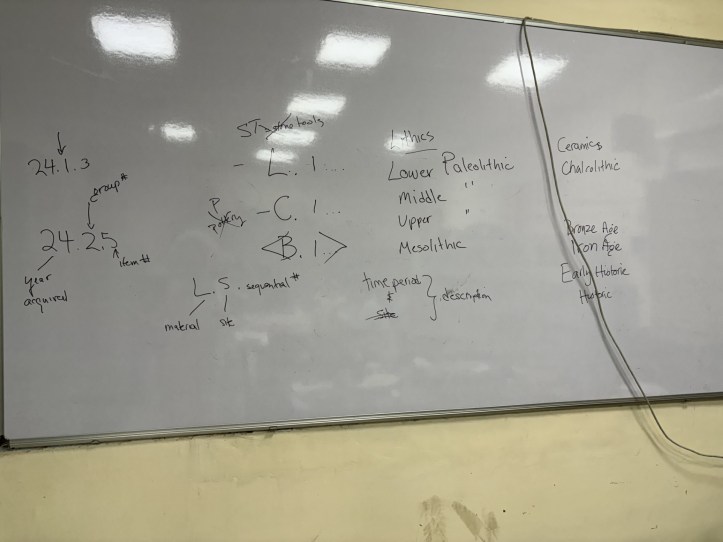 24.1.3
group #
24.2.5
item #
year
acquired
ST stone tools
- L. 1 ...
P
pottery
- C. 1 ...
<B. 1>
L. S. sequential #
material
site
Lithics
Lower Paleolithic
Middle "
Upper "
Mesolithic
time period
&
site
description
Ceramics
Chalcolithic
Bronze Age
Iron Age
Early Historic
Historic